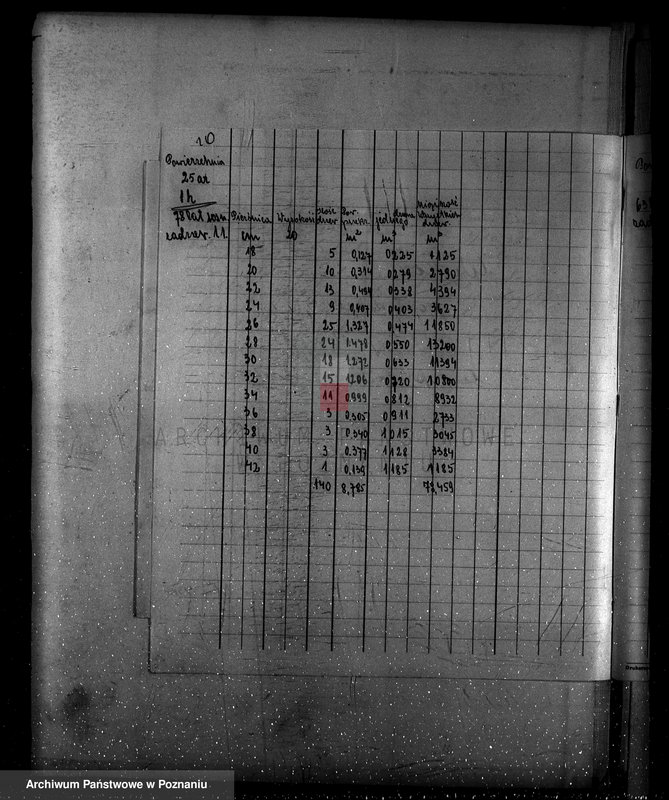 20
Powierzchnia
25 ar
1 h
78 lat sosn.
zadrzew. 1.1
Pierśnica Wysokość Ilość drzew Pow. jednego drzewa
cm 20 m² m³ m³
18 5 0,127 0225 1125
20 10 0,314 0279 2790
22 13 0,494 0338 4394
24 9 0,407 0403 3627
26 25 1,327 0,474 11850
28 24 1.478 0,550 13200
30 18 1.272 0,633 11394
32 15 1206 0,720 10800
34 11 0,999 0,812 8932
36 3 0,305 0911 2733
38 3 0,340 1015 3045
40 3 0,377 1128 3384
42 1 0,139 1185 1185
140 8,785 78,459
ARCHIWUM PAŃSTWOWE
Archiwum Państwowe w Poznaniu